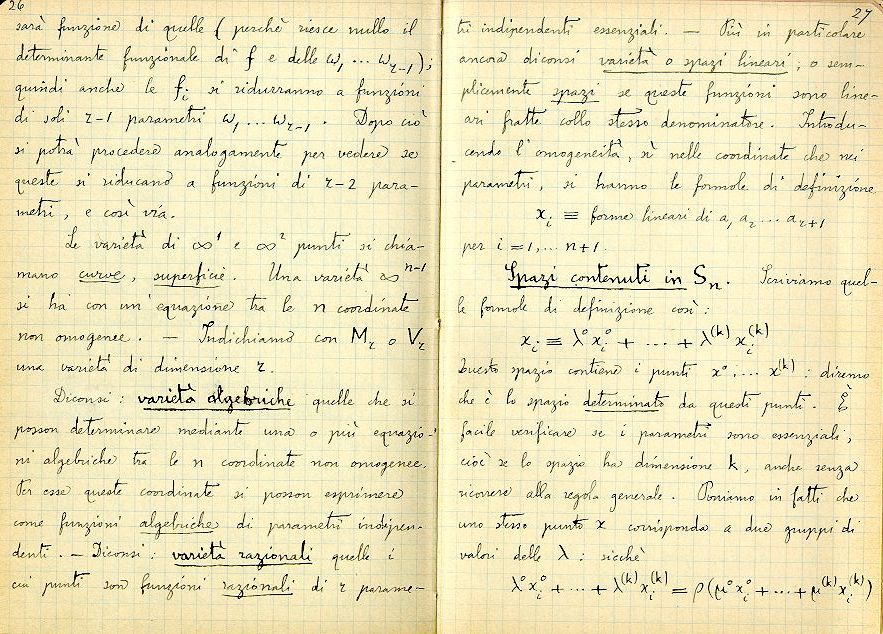 26
sarà funzione di quelle (perchè riesce nullo il
determinante funzionale di f e delle ω₁ ... ω_{r-1});
quindi anche le f_i si ridurranno a funzioni
di soli r-1 parametri ω₁ ... ω_{r-1}. Dopo ciò
si potrà procedere analogamente per vedere se
queste si riducano a funzioni di r-2 para-
metri, e così via.
Le varietà di ∞¹ e ∞² punti si chia-
mano curve, superficie. Una varietà ∞^{n-1}
si ha con un'equazione tra le n coordinate
non omogenee. — Indichiamo con M_r o V_r
una varietà di dimensione r.
Diconsi: varietà algebriche quelle che si
posson determinare mediante una o più equazio-
ni algebriche tra le n coordinate non omogenee.
Per esse queste coordinate si posson esprimere
come funzioni algebriche di parametri indipen-
denti. — Diconsi: varietà razionali quelle i
cui punti son funzioni razionali di r parame-
27
tri indipendenti essenziali. — Più in particolare
ancora diconsi varietà o spazi lineari; o sem-
plicemente spazi se queste funzioni sono line-
ari fratte collo stesso denominatore. Introdu-
cendo l'omogeneità, sì nelle coordinate che nei
parametri, si hanno le formole di definizione
x_i ≡ forme lineari di a₁ a₂ ... a_{r+1}
per i = 1, ... n+1.
Spazi contenuti in S_n. Scriviamo quel-
le formole di definizione così:
x_i ≡ λ°x_i° + ... + λ^{(k)}x_i^{(k)}
Questo spazio contiene i punti x°, ... x^{(k)}: diremo
che è lo spazio determinato da questi punti. È
facile verificare se i parametri sono essenziali,
cioè se lo spazio ha dimensione k, anche senza
ricorrere alla regola generale. Poniamo in fatti che
uno stesso punto x corrisponda a due gruppi di
valori delle λ: sicchè
λ°x_i° + ... + λ^{(k)}x_i^{(k)} = ρ(μ°x_i° + ... + μ^{(k)}x_i^{(k)})